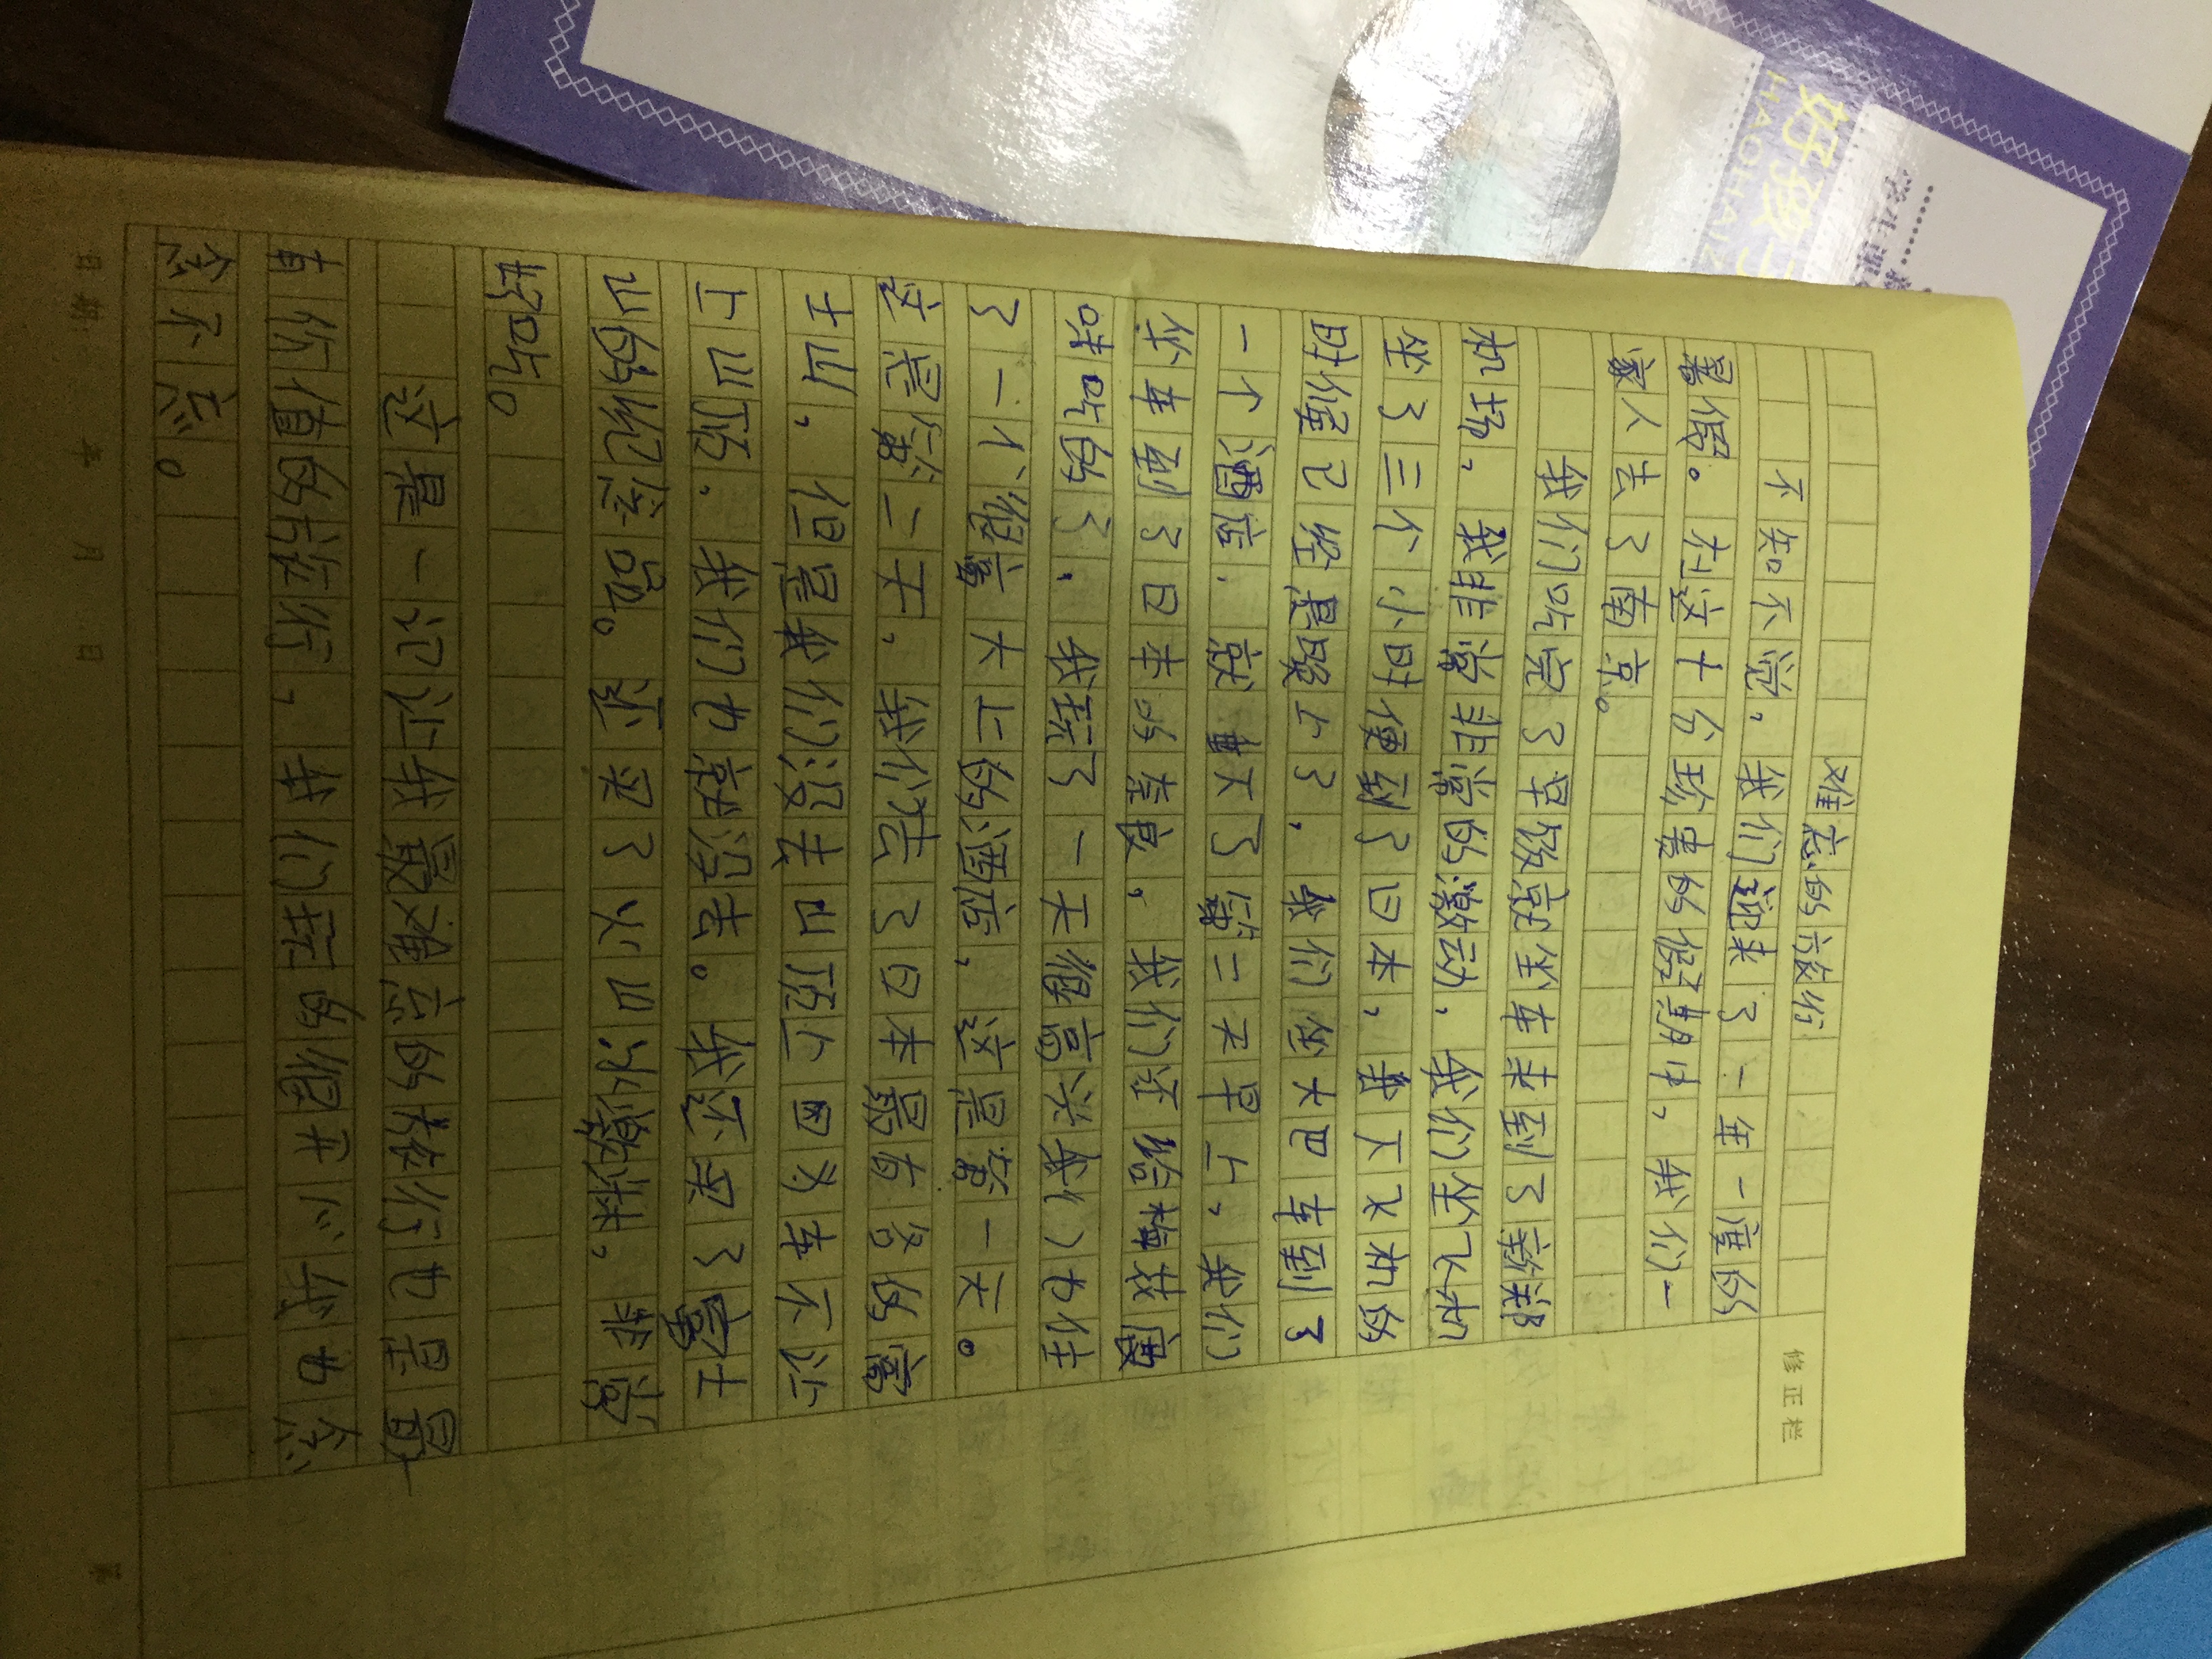 难忘的旅行
不知不觉，我们迎来了一年一度的
暑假。在这十分珍贵的假期中，我们一
家人去了南京。
我们吃完了早饭就坐车来到了新郑
机场，我非常非常的激动，我们坐飞机
坐了三个小时便到了日本，我下飞机的
时候已经是晚上了，我们坐大巴车到了
一个酒店，就十天了第二天早上，我们
坐车到了日本的奈良，我们还给梅花鹿
喂吃的了，我玩了一天很高兴我们也住
了一个很高大上的酒店，这是第一天。
这是第二天，我们去了日本最有名的富
士山，但是我们没去山顶上因为车不让
上山顶，我们也就没去。我还买了富士
山的纪念品。还买了火山冰激淋，非常
好吃。
这是一记让我最难忘的旅行也是最
有价值的旅行，我们玩的很开心我也念
念不忘。
修正栏
日期 年 月 日
第
好孩子
HAOHAIZ